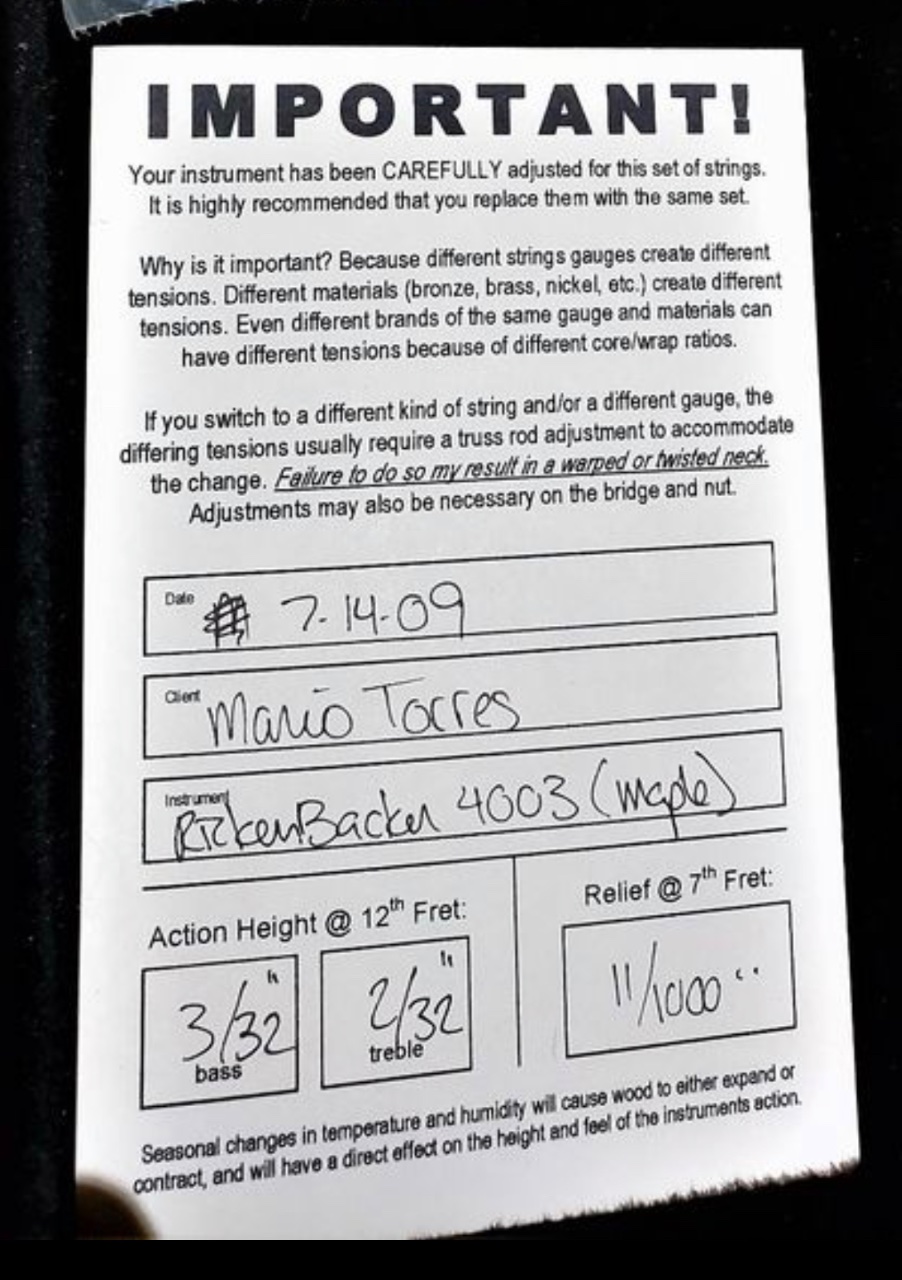 IMPORTANT!
Your instrument has been CAREFULLY adjusted for this set of strings.
It is highly recommended that you replace them with the same set.
Why is it important? Because different strings gauges create different
tensions. Different materials (bronze, brass, nickel, etc.) create different
tensions. Even different brands of the same gauge and materials can
have different tensions because of different core/wrap ratios.
If you switch to a different kind of string and/or a different gauge, the
differing tensions usually require a truss rod adjustment to accommodate
the change. Failure to do so my result in a warped or twisted neck.
Adjustments may also be necessary on the bridge and nut.
Date 7-14-09
Client Mario Torres
Instrument RickenBacker 4003 (maple)
Action Height @ 12th Fret:
Relief @ 7th Fret:
3/32"
bass
2/32"
treble
11/1000"
Seasonal changes in temperature and humidity will cause wood to either expand or
contract, and will have a direct effect on the height and feel of the instruments action.